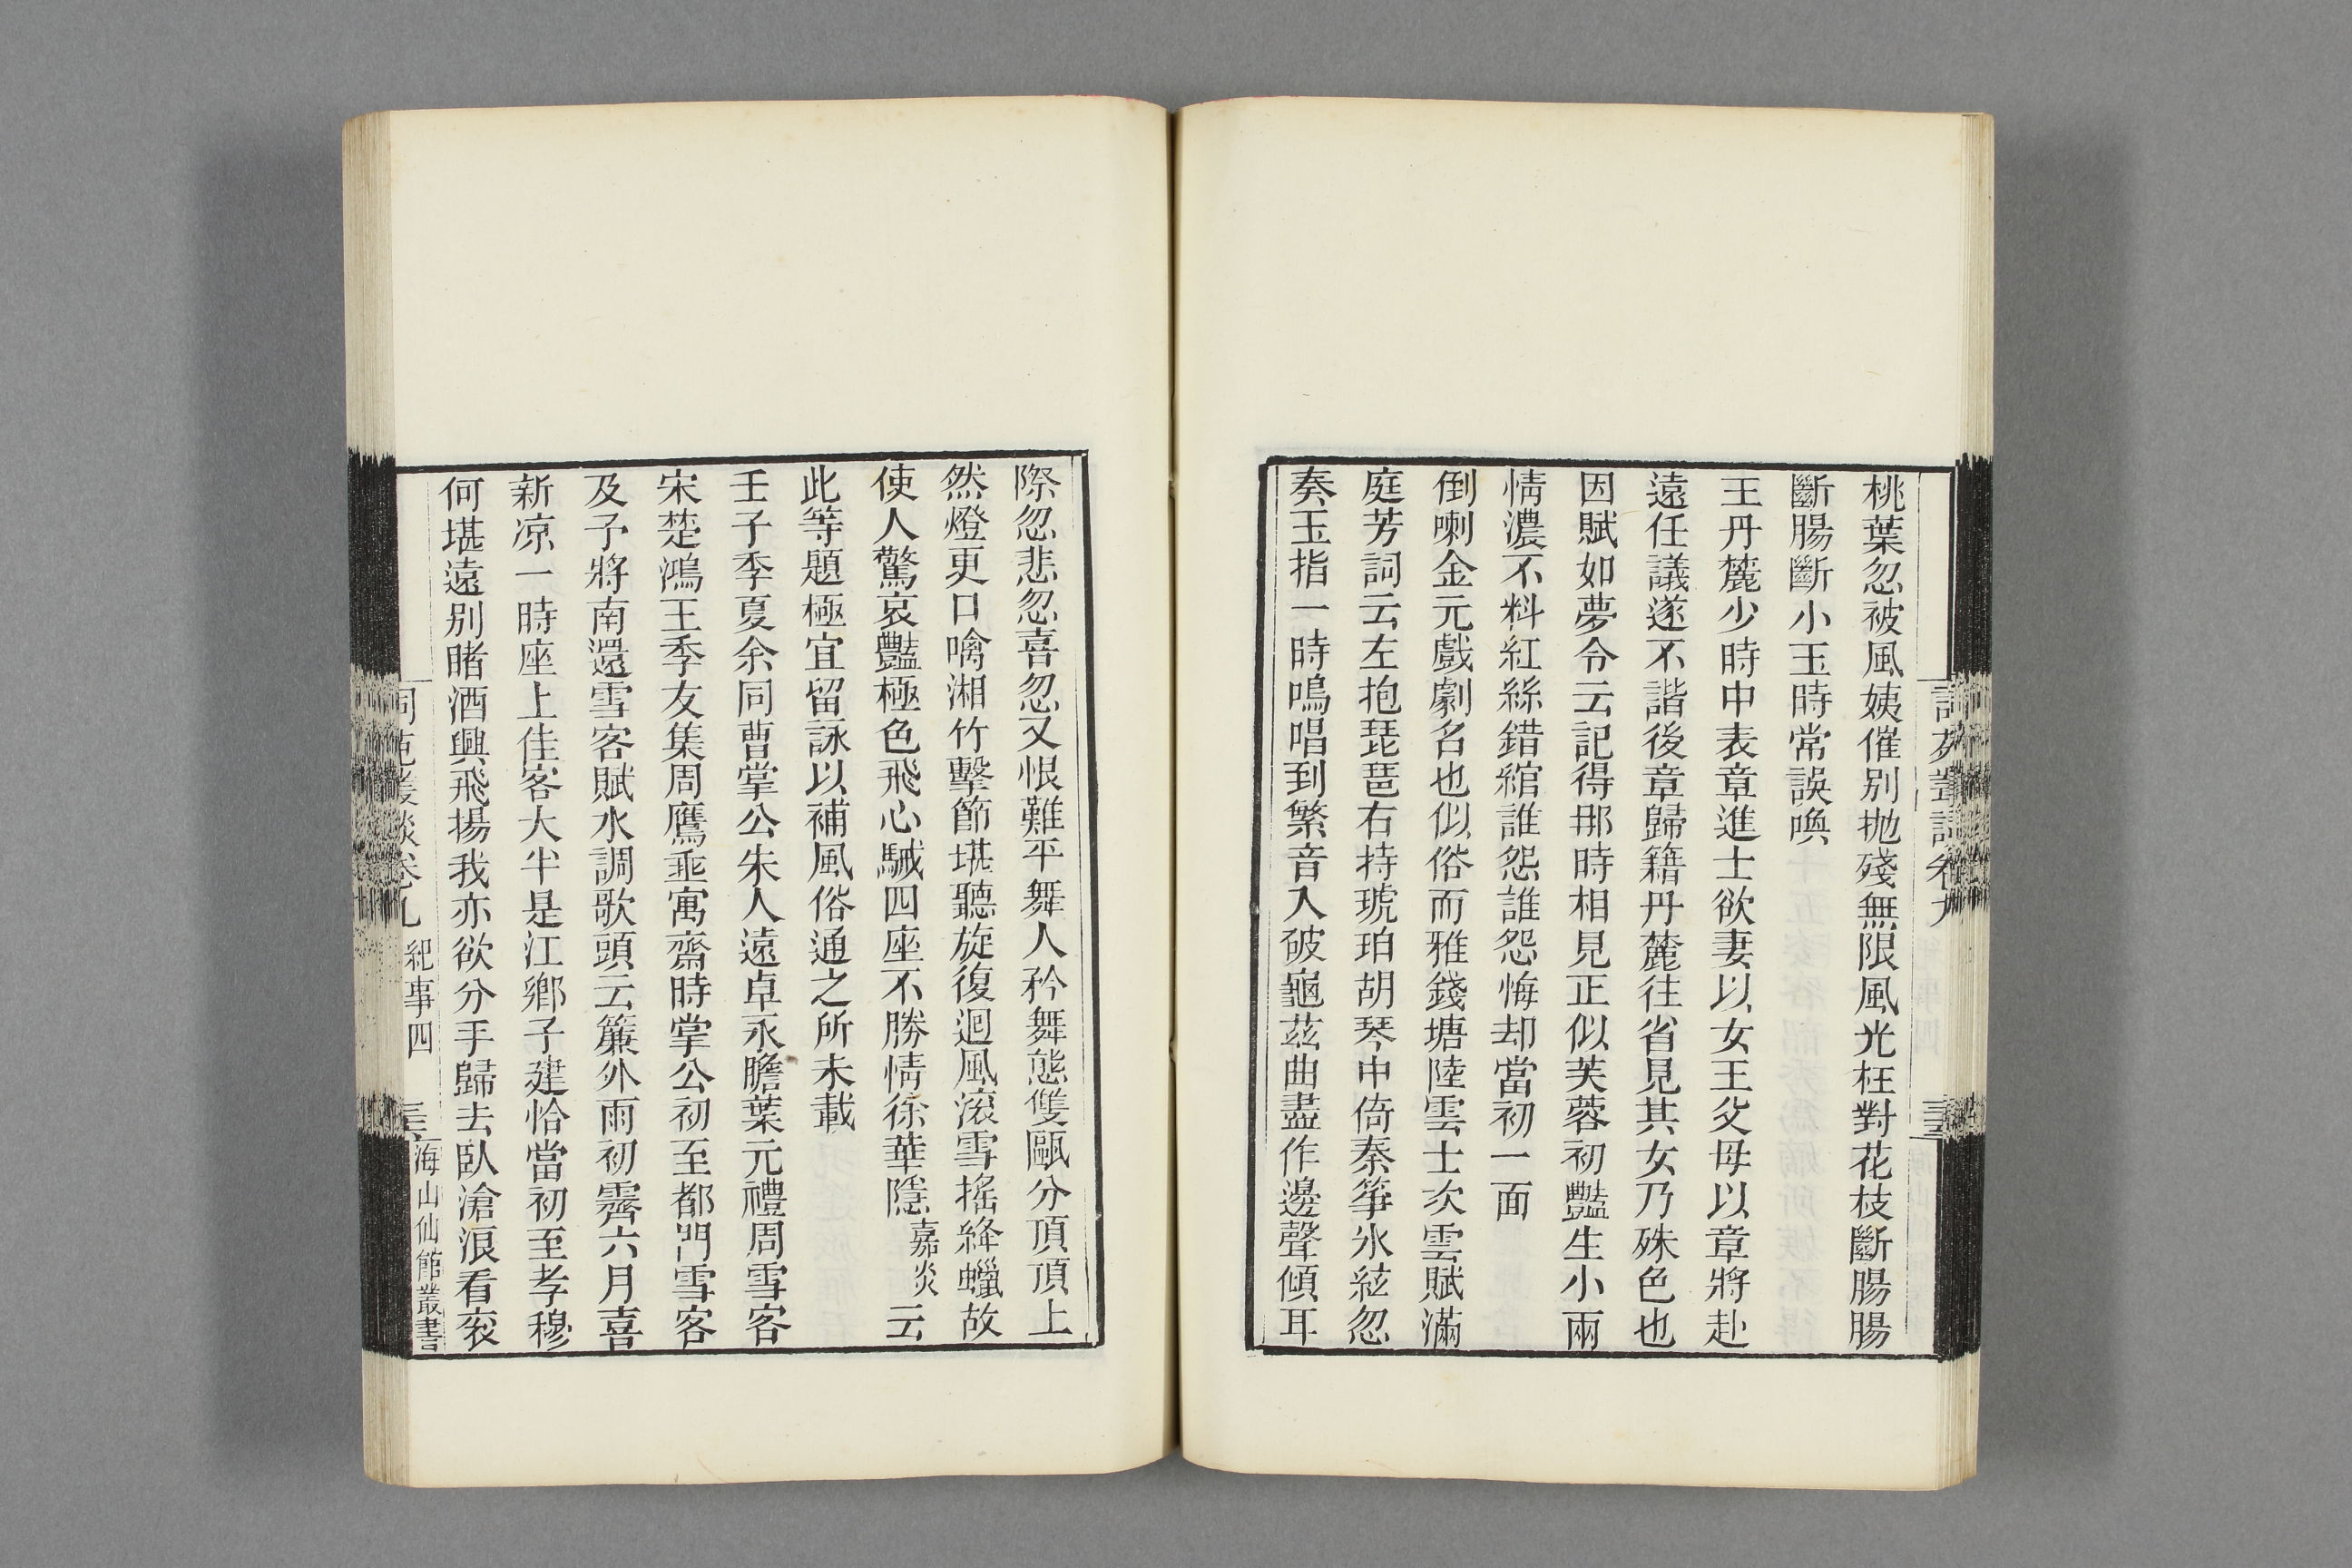 桃葉忽被風姨催别抛殘無限風光枉對花枝斷腸腸
斷腸斷小玉時常誤喚
王丹麓少時中表章進士欲妻以女王父母以章將赴
遠任議遂不諧後章歸籍丹麓往省見其女乃殊色也
因賦如夢令云記得那時相見正似芙蓉初豔生小兩
情濃不料紅絲錯綰誰怨誰怨悔却當初一面
倒喇金元戲劇名也似俗而雅錢塘陸雲士次雲賦滿
庭芳詞云左抱琵琶右持琥珀胡琴中倚秦箏氷絃忽
奏玉指一時鳴唱到繁音入破龜茲曲盡作邊聲傾耳
詞苑叢談卷九
際忽悲忽喜忽又恨難平舞人矜舞態雙甌分頂頂上
然燈更口噙湘竹擊節堪聽旋復迴風滚雪摇絳蠟故
使人驚哀豔極色飛心駴四座不勝情徐華隱嘉炎云
此等題極宜留詠以補風俗通之所未載
壬子季夏余同曹掌公朱人遠卓永瞻葉元禮周雪客
宋楚鴻王季友集周鷹垂寓齋時掌公初至都門雪客
及予將南還雪客賦水調歌頭云簾外雨初霽六月喜
新凉一時座上佳客大半是江鄉子建恰當初至孝穆
何堪遠别睹酒興飛揚我亦欲分手歸去臥滄浪看衮
詞苑叢談卷九 紀事四 海山仙館叢書